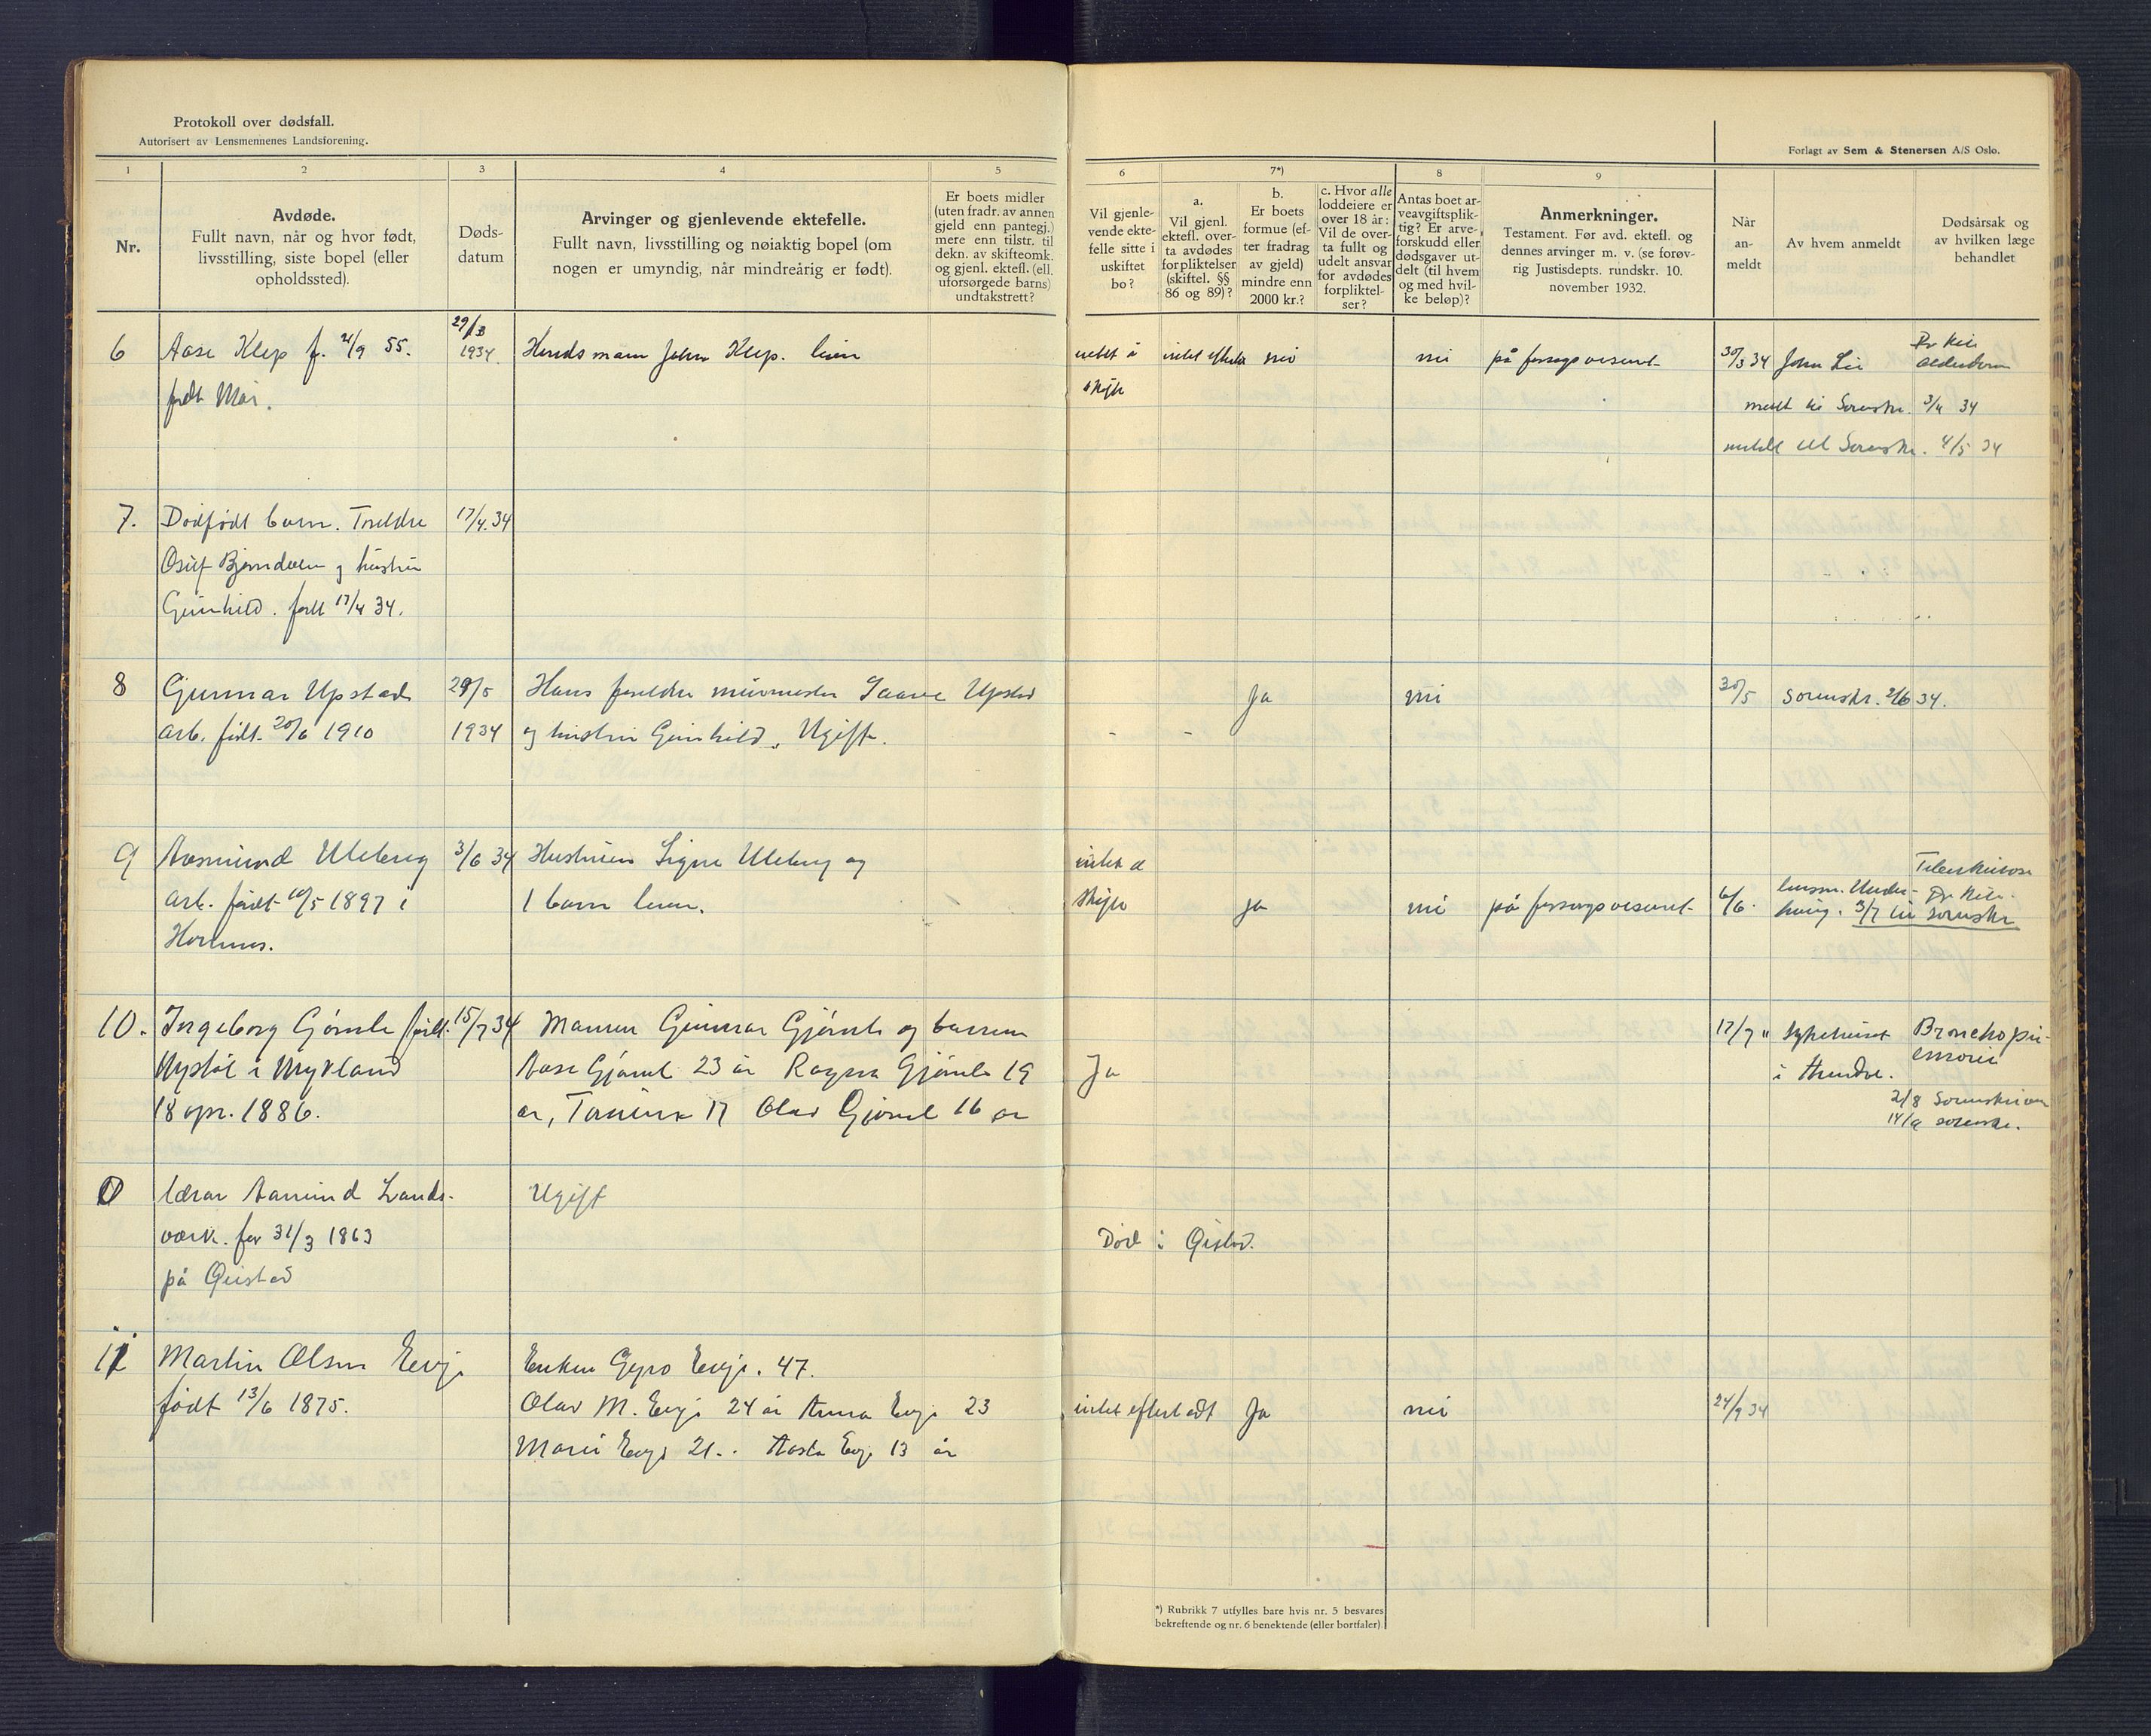 Protokoll over dødsfall.
Autorisert av Lensmennenes Landsforening.
Forlagt av Sem & Stenersen A/S Oslo.
1 2 3 4 5 6 7*) 8 9
Nr.
Avdøde.
Fullt navn, når og hvor født,
livsstilling, siste bopel (eller
opholdssted).
Døds-
datum
Arvinger og gjenlevende ektefelle.
Fullt navn, livsstilling og nøiaktig bopel (om
nogen er umyndig, når mindreårig er født).
Er boets midler
(uten fradr. av annen
gjeld enn pantegj.)
mere enn tilstr. til
dekn. av skifteomk.
og gjenl. ektefl. (ell.
uforsørgede barns)
undtakstrett?
Vil gjenle-
vende ekte-
felle sitte i
uskiftet
bo?
a.
Vil gjenl.
ektefl. over-
ta avdødes
forpliktelser
(skiftel. §§
86 og 89)?
b.
Er boets
formue (ef-
ter fradrag
av gjeld)
mindre enn
2000 kr.?
c. Hvor alle
loddeiere er
over 18 år:
Vil de over-
ta fullt og
udelt ansvar
for avdødes
forpliktel-
ser?
Antas boet ar-
veavgiftsplik-
tig? Er arve-
forskudd eller
dødsgaver ut-
delt (til hvem
og med hvil-
ke beløp)?
Anmerkninger.
Testament. Før avd. ektefl. og
dennes arvinger m. v. (se forøv-
rig Justisdepts. rundskr. 10.
november 1932.
Når
an-
meldt
Av hvem anmeldt
Dødsårsak og
av hvilken læge
behandlet
6 Aase Klep f. 21/9 55. 29/3 1934 Husdsmann John Klep. leier
født Mår.
nei på forsorgsvesenet 30/3 34 John Lie
meldt til Sorenskr. 3/4 34
meldt til Sorenskr. 4/5 34
7. Dødfødt barn. Foreldre 17/4.34
Bjørndalen og hustru
Gunhild. født 17/4 34.
8 Gunnar Upstad 29/5 Hans foreldre murmester Upstad
arb. født 20/6 1910 1934 og hustru Gunhild. Ugift.
- - Ja nei 30/5 Sorenskr. 2/6 34.
9 Aasmund Uleberg 3/6 34 Hustruen Signe Uleberg og
arb. født 10/5 1897 i 1 barn leier.
Hornnes.
intet å
skifte ja nei på forsorgsvesenet 6/6.
3/7 til sorenskr
10. Ingeborg Gjømle født 15/7 34 Mannen Gunnar Gjømle og barnene
i Mykland Aase Gjømle 23 år Ragna Gjømle 19
18 apr. 1886. år, 17 Olav Gjømle 16 år
Ja 17/7 " sykehuset Bronchopn-
eumoni
i Arendal.
2/8 Sorenskriver
14/9 sorenskr.
Lærar Aanund Lands- Ugift
værk. før 31/3 1863
på
Død i
11 Martin Olsen Evje Enken Gyro Evje. 47.
født 13/6 1875. Olav M. Evje 24 år Anna Evje 23
Marie Evje 21.. Aasta Evje 13 år
intet efterlatt Ja nei 24/9 34
*) Rubrikk 7 utfylles bare hvis nr. 5 besvares
bekreftende og nr. 6 benektende (eller bortfaler).